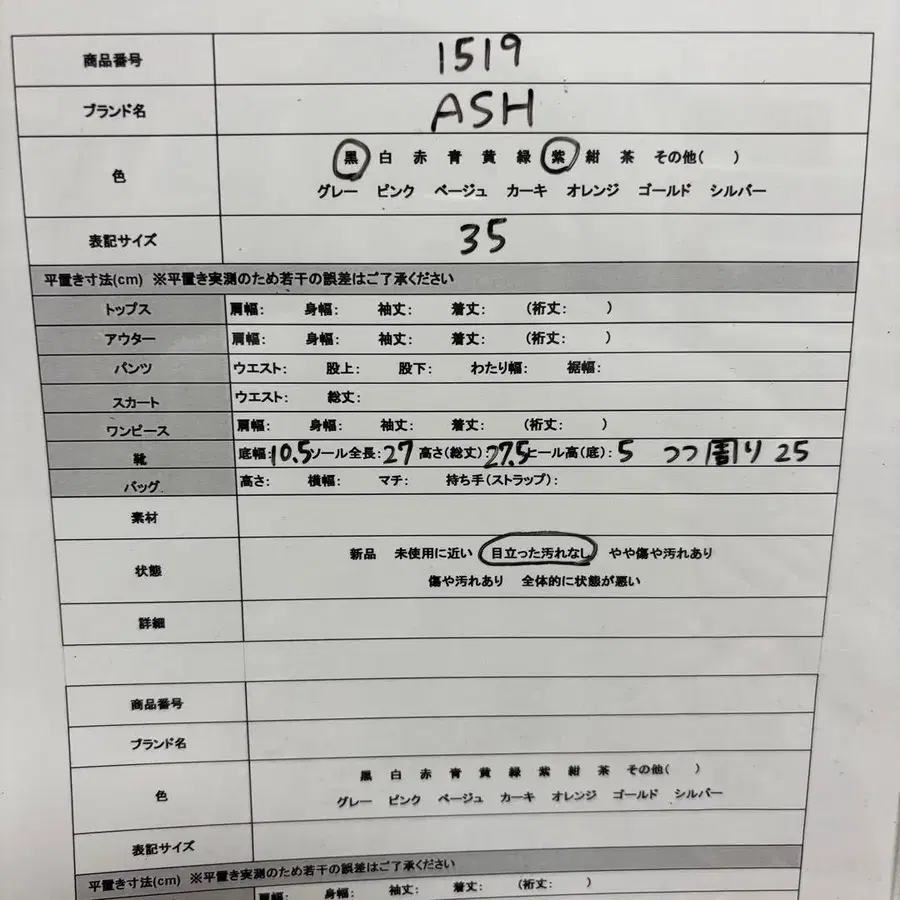 商品番号 1519
ブランド名 ASH
色 黒 白 赤 青 黄 緑 紫 紺 茶 その他( )
グレー ピンク ベージュ カーキ オレンジ ゴールド シルバー
表記サイズ 35
平置き寸法(cm) ※平置き実測のため若干の誤差はご了承ください
トップス 肩幅: 身幅: 袖丈: 着丈: (裄丈: )
アウター 肩幅: 身幅: 袖丈: 着丈: (裄丈: )
パンツ ウエスト: 股上: 股下: わたり幅: 裾幅:
スカート ウエスト: 総丈:
ワンピース 肩幅: 身幅: 袖丈: 着丈: (裄丈: )
靴 底幅:10.5 ソール全長:27 高さ(総丈):27.5 ヒール高(底):5 つつ周り 25
バッグ 高さ: 横幅: マチ: 持ち手(ストラップ):
素材
状態 新品 未使用に近い 目立った汚れなし やや傷や汚れあり
傷や汚れあり 全体的に状態が悪い
詳細
商品番号
ブランド名
色 黒 白 赤 青 黄 緑 紫 紺 茶 その他( )
グレー ピンク ベージュ カーキ オレンジ ゴールド シルバー
表記サイズ
平置き寸法(cm) ※平置き実測のため若干の誤差はご了承ください
肩幅: 身幅: 袖丈: 着丈: (裄丈: )